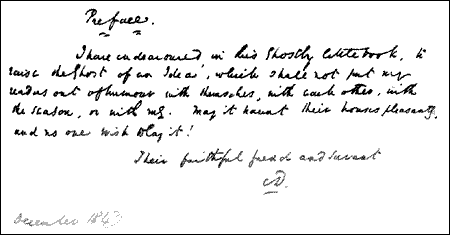 Preface.
I have endeavoured, in this Ghostly little book, to
raise the Ghost of an Idea, which shall not put my
readers out of humour with themselves, with each other, with
the season, or with me. May it haunt their houses pleasantly,
and no one wish to lay it!
Their faithful friend and servant
CD.
December 1843